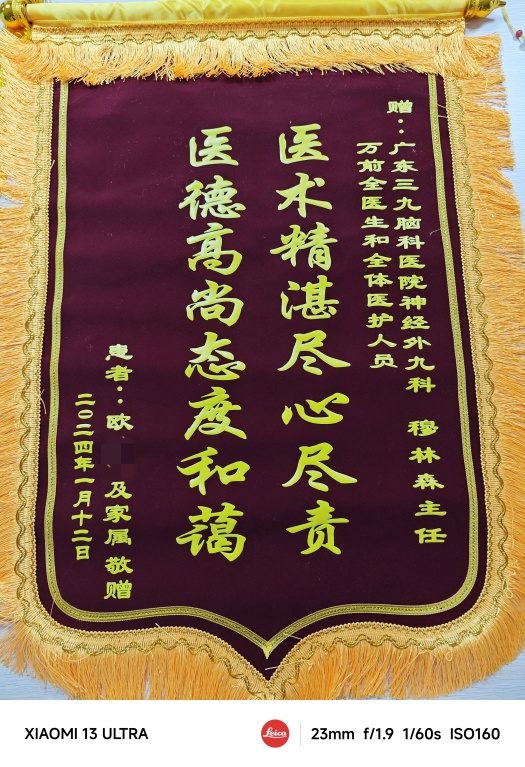 赠：广东三九脑科医院神经外九科 穆林森主任
万前全医生和全体医护人员
医术精湛尽心尽责
医德高尚态度和蔼
患者：欧 及家属敬赠
二〇二四年一月十二日
XIAOMI 13 ULTRA
Leica
23mm f/1.9 1/60s ISO160